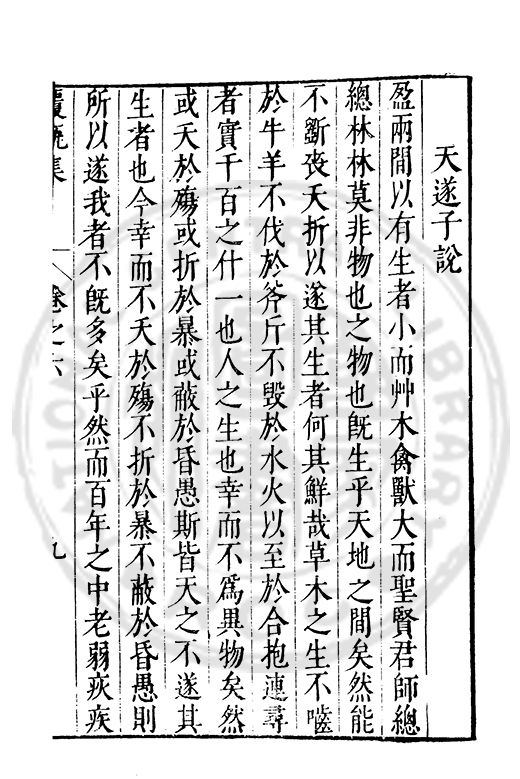 天遂子說
盈兩間以有生者小而艸木禽獸大而聖賢君師總
總林林莫非物也之物也旣生乎天地之間矣然能
不斵喪夭折以遂其生者何其鮮哉草木之生不囓
於牛羊不伐於斧斤不毀於水火以至於合抱連尋
者實千百之什一也人之生也幸而不爲異物矣然
或夭於殤或折於暴或蔽於昏愚斯皆天之不遂其
生者也今幸而不夭於殤不折於暴不蔽於昏愚則
所以遂我者不旣多矣乎然而百年之中老弱疢疾
覆瓿集 卷之六 九